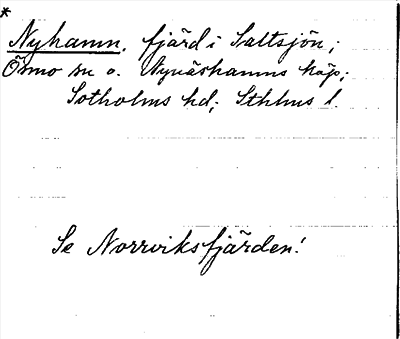 *
Nyhamn, fjärd i Saltsjön;
Ösmo sn o. Nynäshamns köp;
Sotholms hd; Sthlms l.
Se Norrviksfjärden!